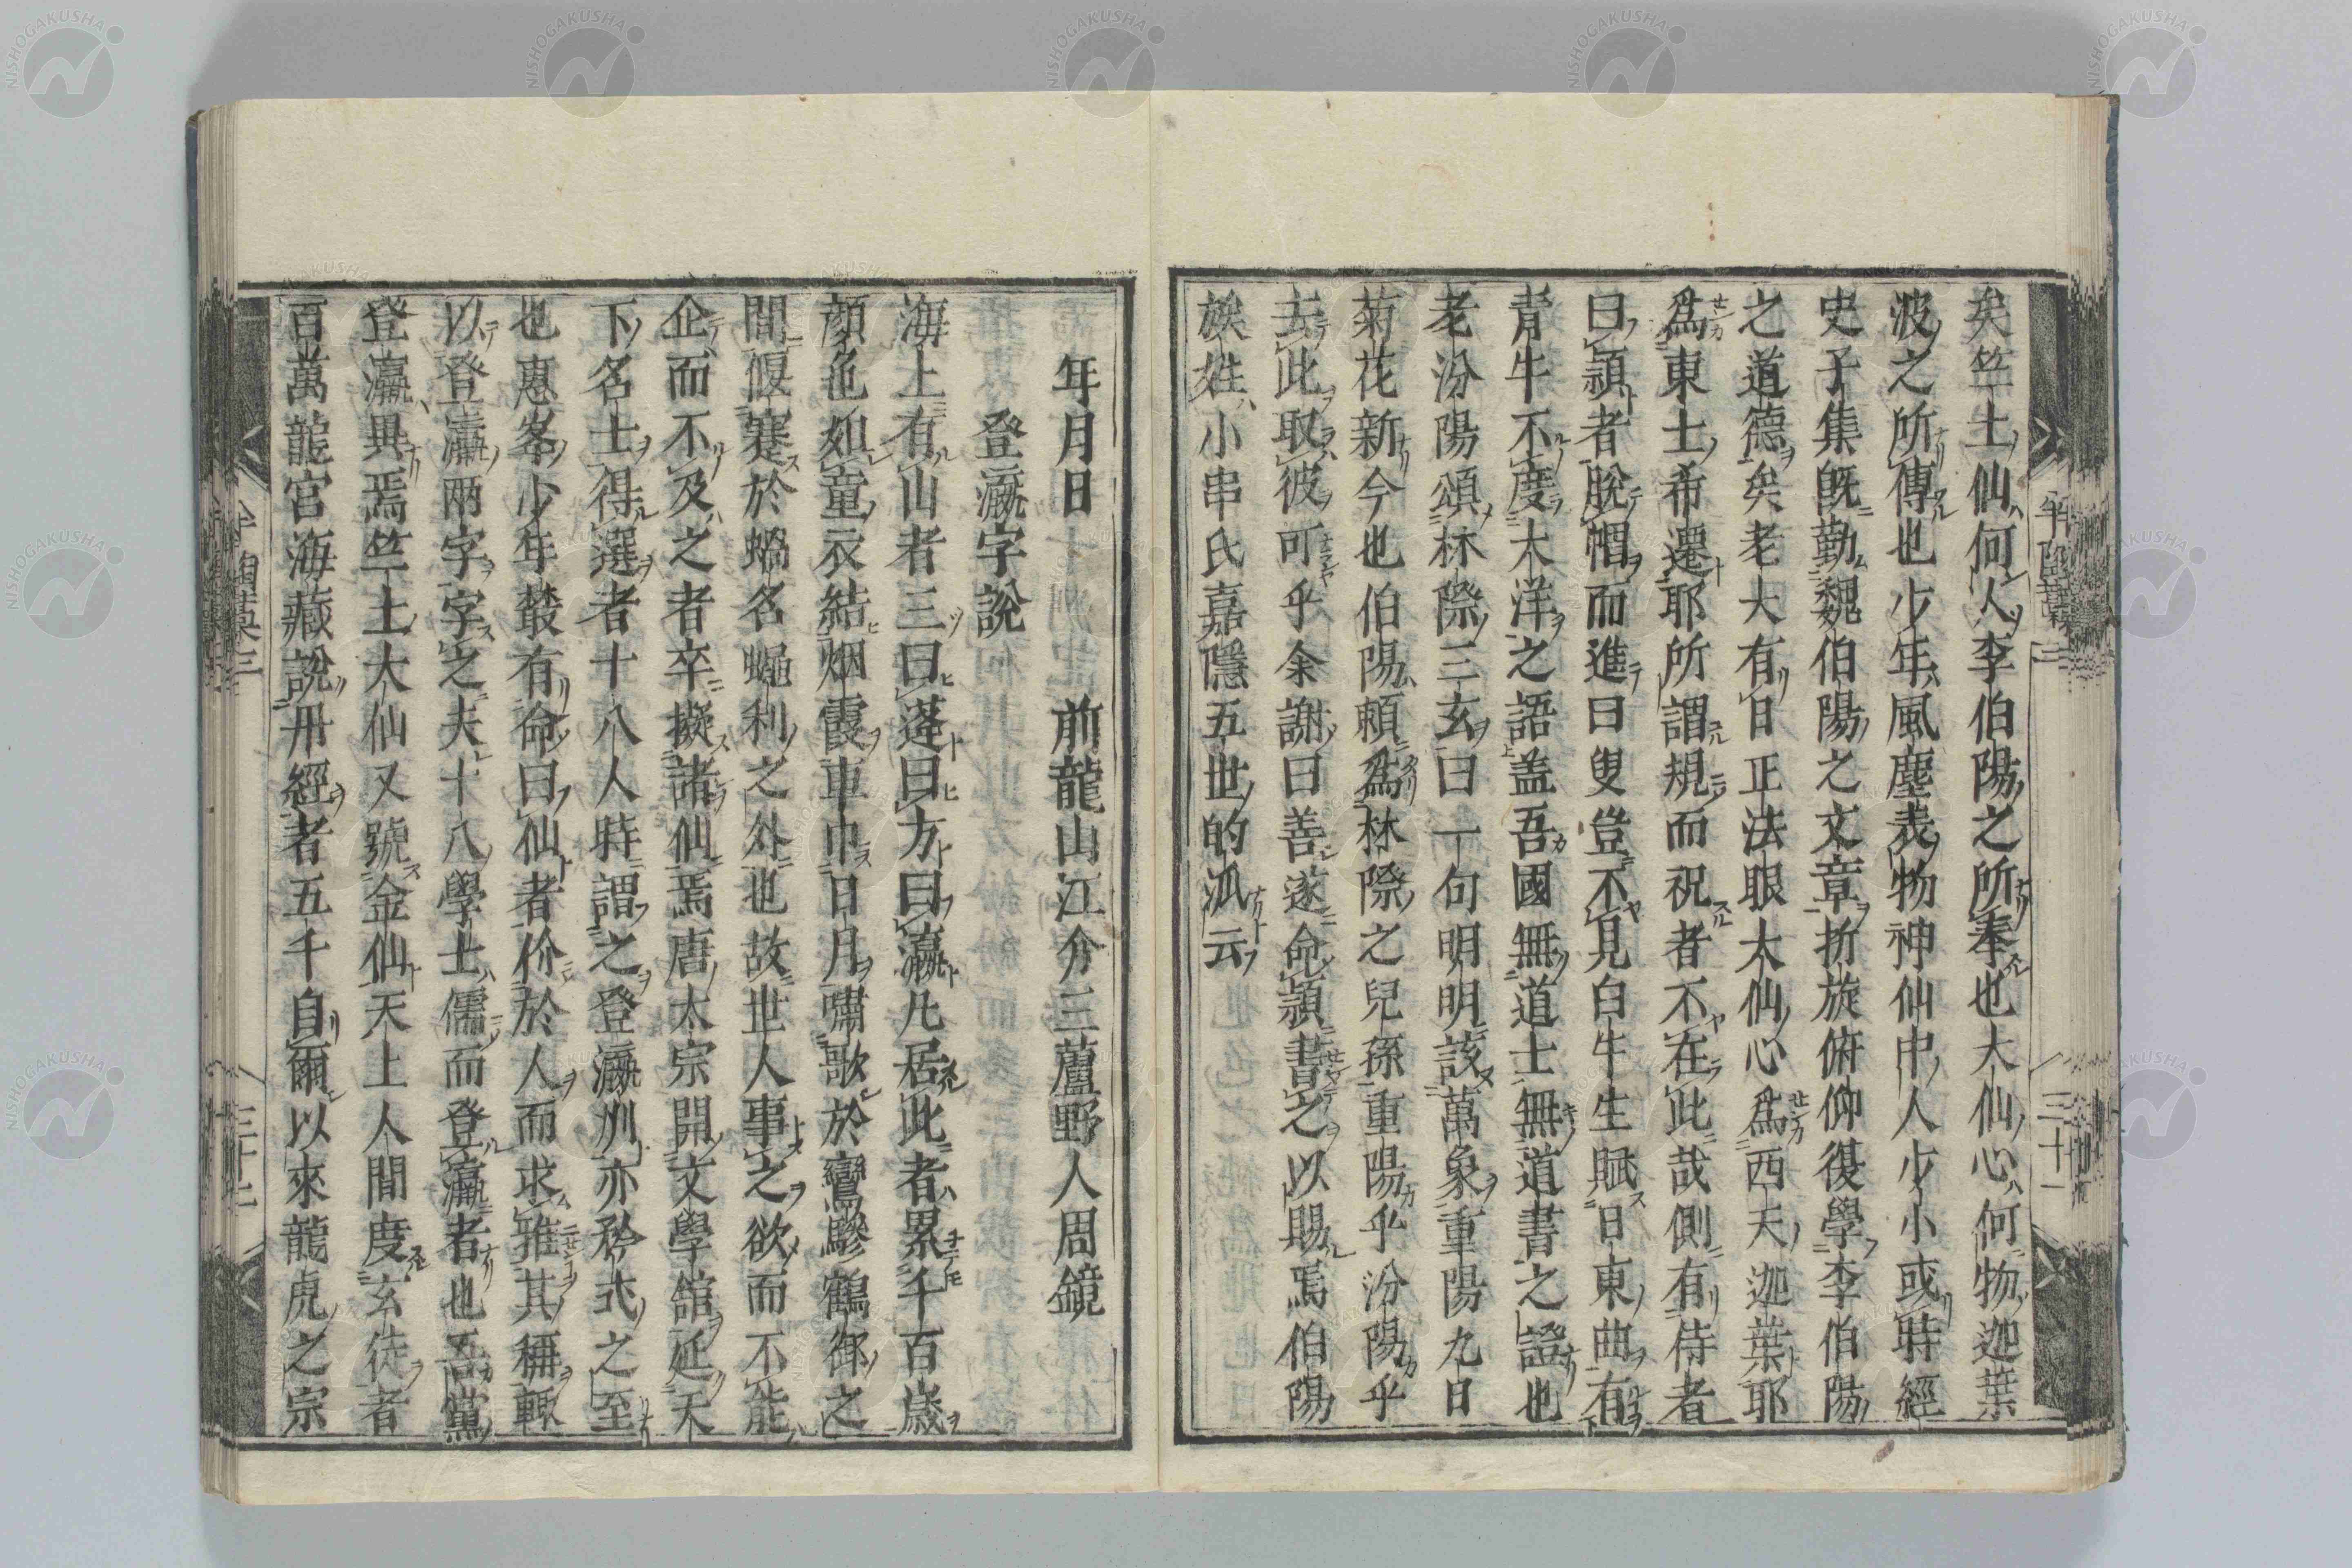 矣竺土仙何人李伯陽之所奉也大仙心何物迦葉
波之所傳也少年風塵表物神仙中人少小或時經
史子集既勤魏伯陽之文章折旋俯仰復學李伯陽
之道德矣老大有日正法眼大仙心爲西天迦葉耶
爲東土希遷耶所謂規而祝者不在此哉側有侍者
曰頴者脫帽而進曰叟豈不見白牛生賦日東曲有
青牛不度大洋之語盖吾國無道士無道書之證也
老汾陽頌林際三玄曰一句明明該萬象重陽九日
菊花新今也伯陽頼爲林際之兒孫重陽乎汾陽乎
去此取彼可乎余謝曰善遂命頴書之以賜焉伯陽
族姓小串氏嘉隱五世的派云
年月日　前龍山江介三蘆野人周鏡
登瀛字說
海上有山者三曰蓬曰方曰瀛凡居此者累千百歲
顔色如童衣結烟霞車巾日月嘯歌於鸞驂鶴御之
間偃蹇於蝸名蠅利之外也故世人事之欲而不能
企而不及之者卒擬諸仙焉唐太宗開文學舘延天
下名士得選者十八人時謂之登瀛洲亦矜式之至
也惠峯少年叢有命曰仙者价於人而求雅其稱輙
以登瀛兩字字之夫十八學士儒而登瀛者也吾黨
登瀛異焉竺土大仙又號金仙天上人間度玄徒者
百萬龍宮海藏說丹經者五千自爾以來龍虎之宗
三十一